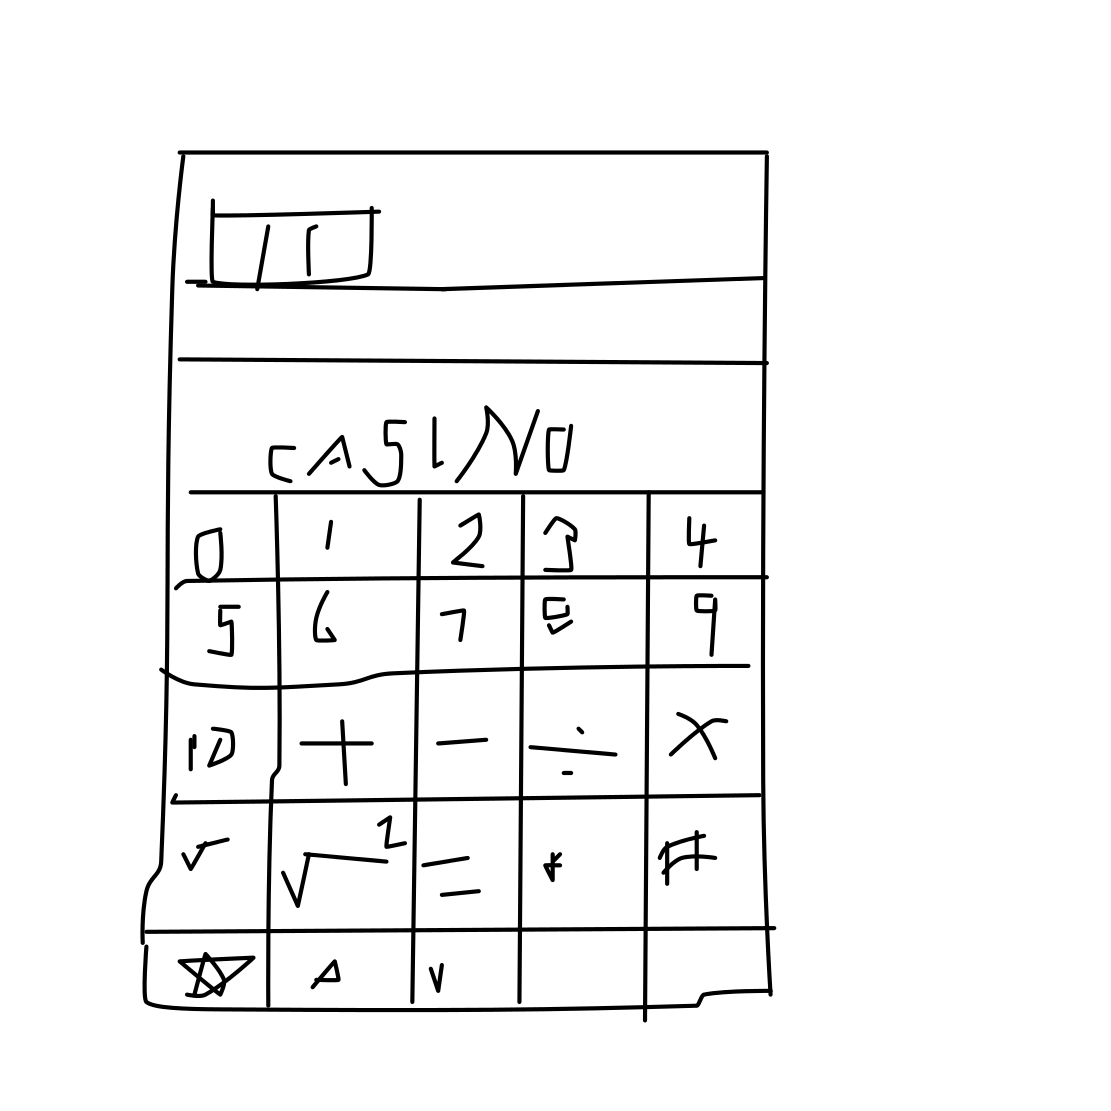 CASINO
0 1 2 3 4
5 6 7 8 9
10 + - ÷ ×
√ √ 2 = * #
☆ △ v